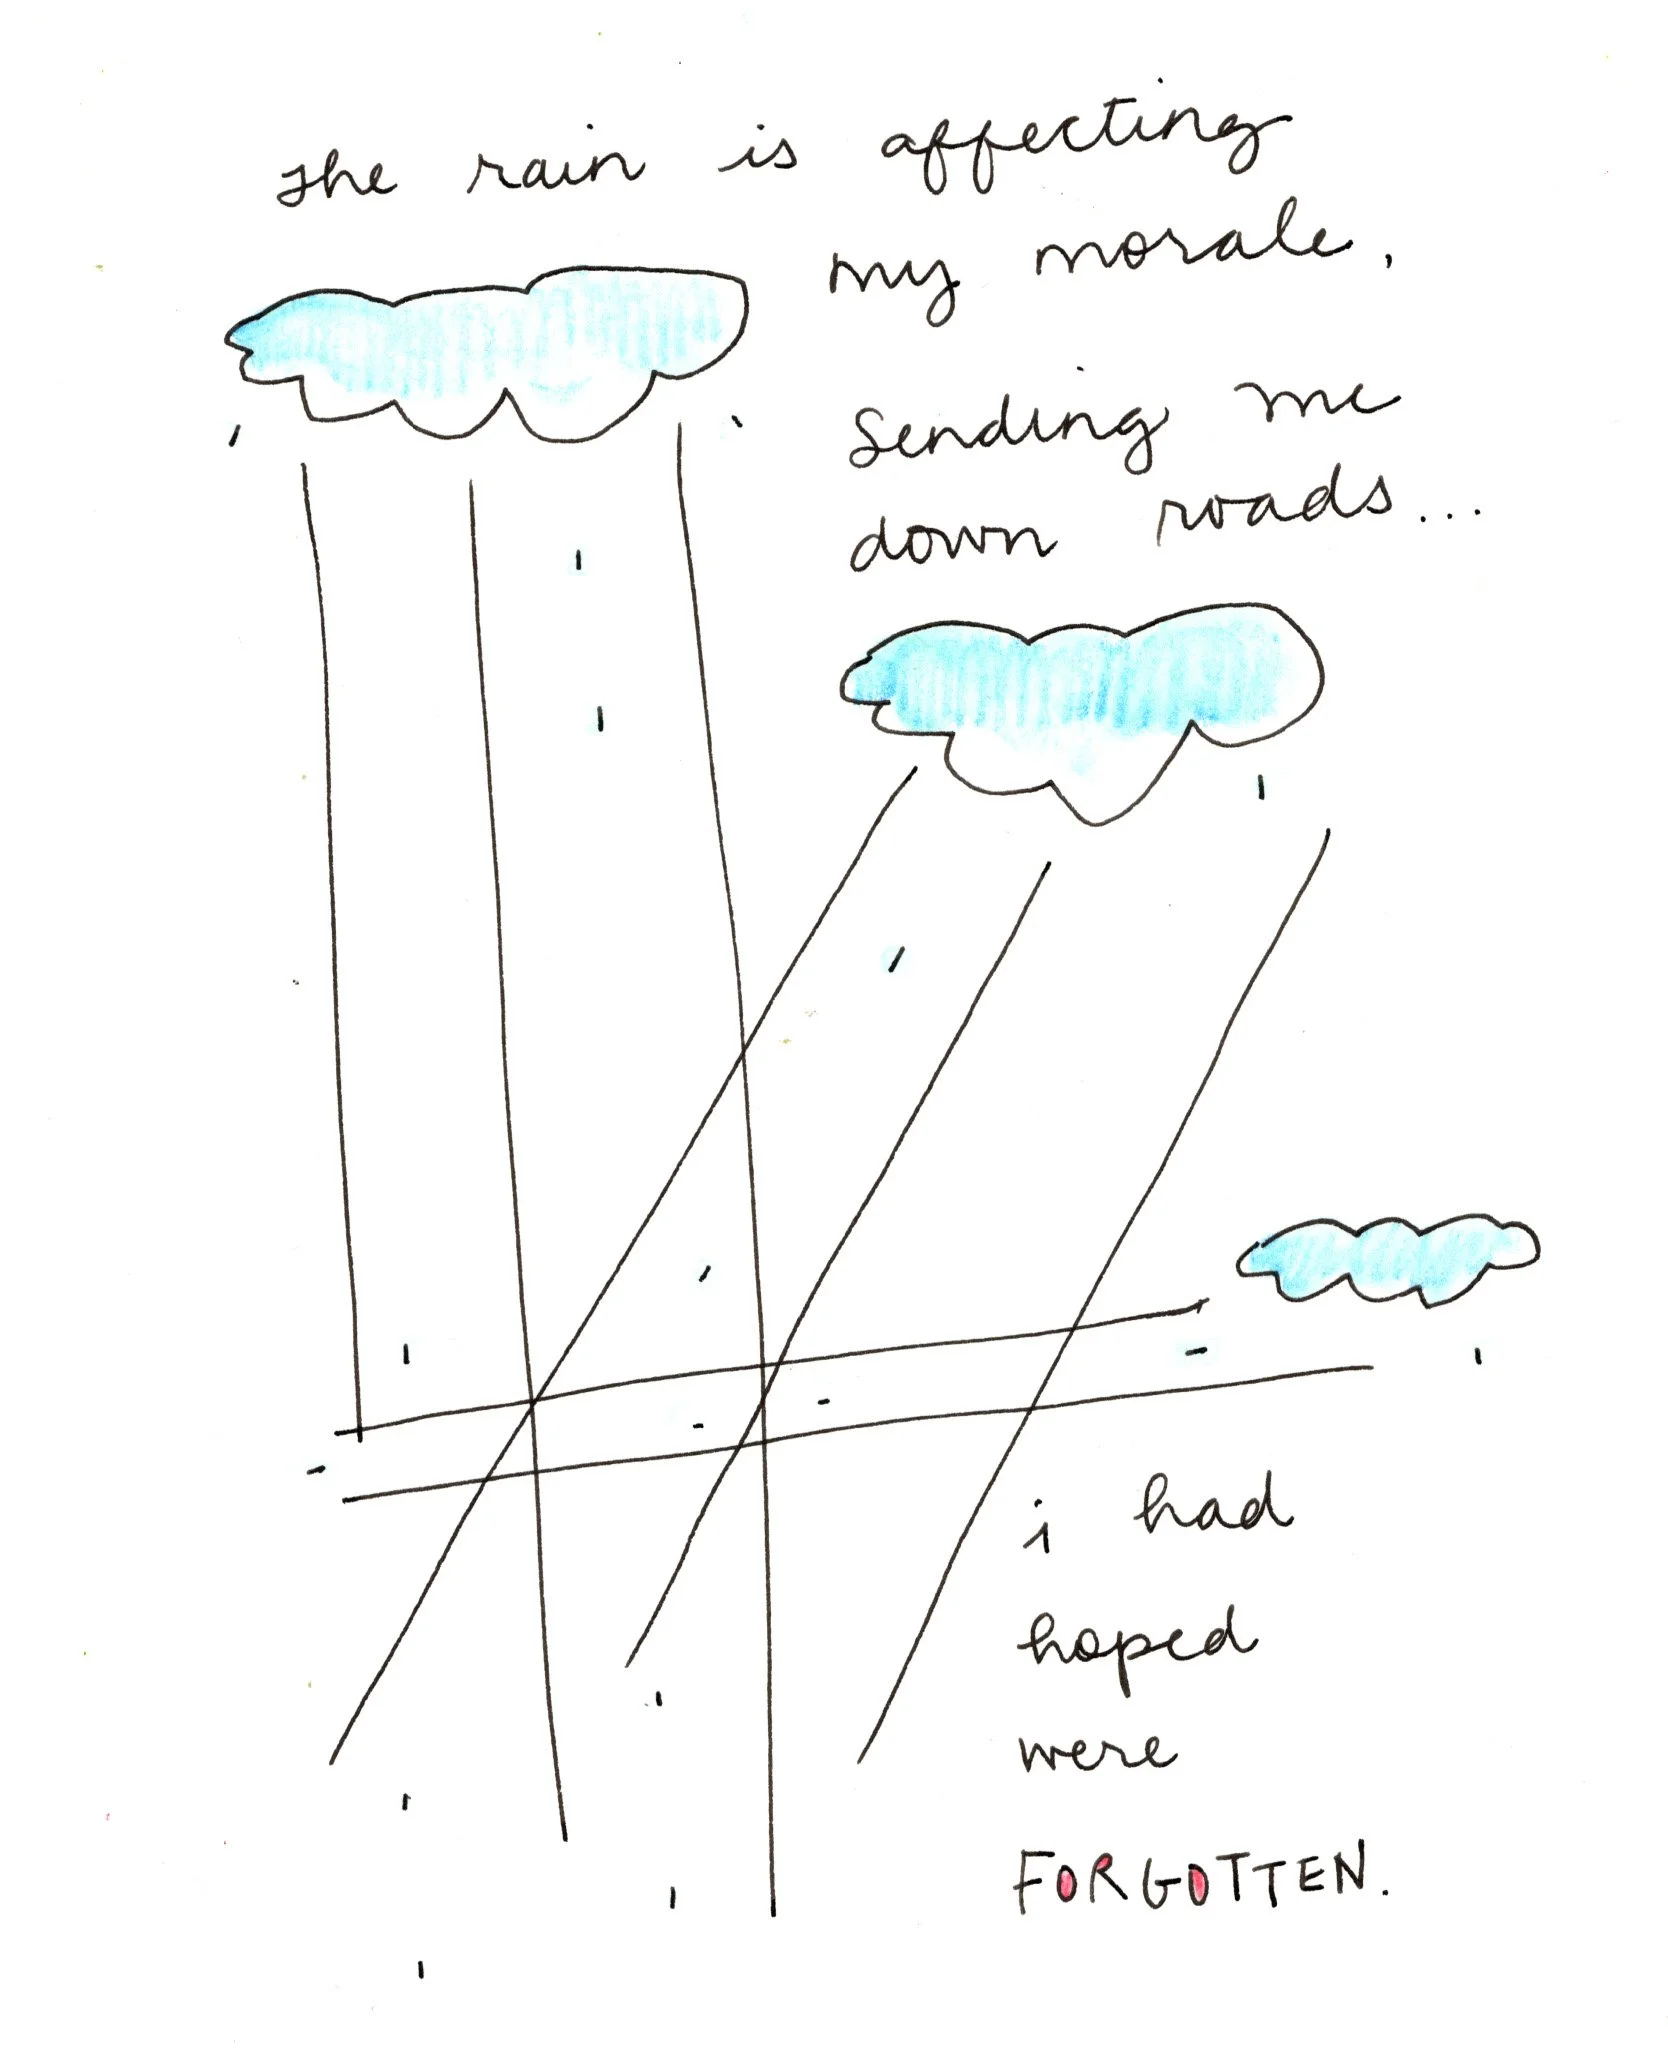 the rain is affecting
my morale,
Sending me
down roads...
i had
hoped
were
FORGOTTEN.